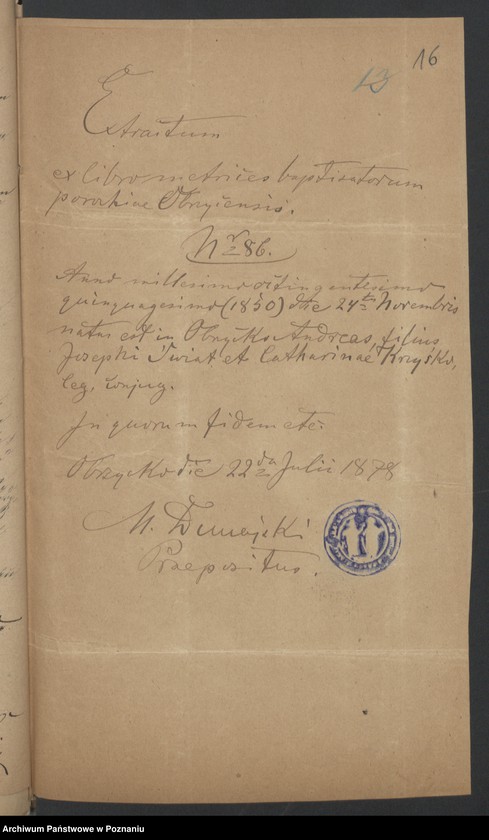 16
13
Extractum
ex libro metrices baptisatorum
parochiae Obrycensis.
Nr 86.
Anno millesimo octingentesimo
quinquagesimo (1850) die 24ta Novembris
natus est in Obrycko Andreas, filius
Josephi Świat et Catharinae Krzyśko,
leg. conjug.
In quorum fidem etc:
Obrzycko die 22da Julii 1878
M.
Praepositus.
Archiwum Państwowe w Poznaniu